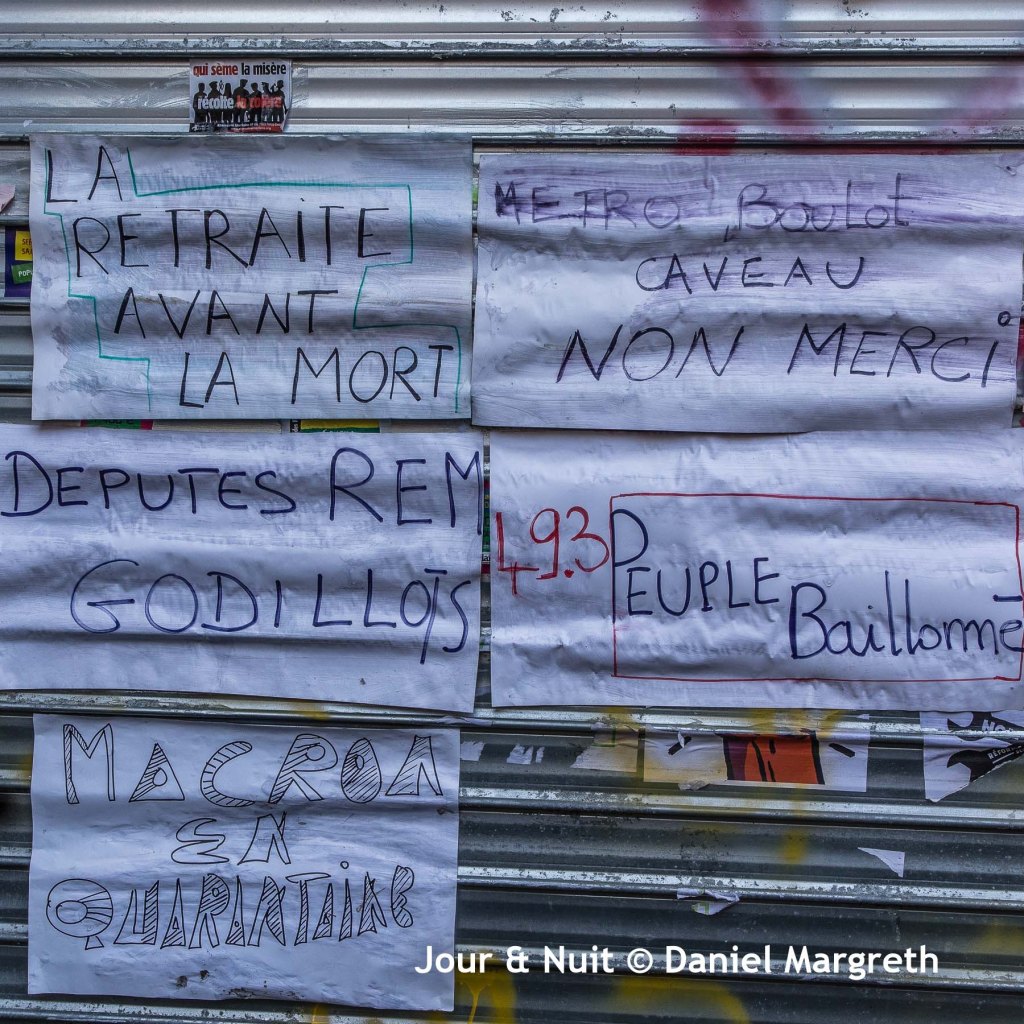 qui sème la misère
récolte la colère
LA
RETRAITE
AVANT
LA MORT
METRO, Boulot
CAVEAU
NON MERCI
DEPUTES REM
GODILLOTS
49.3 PEUPLE Baillonné
MACRON
EN
QUARANTAINE
Jour & Nuit © Daniel Margreth